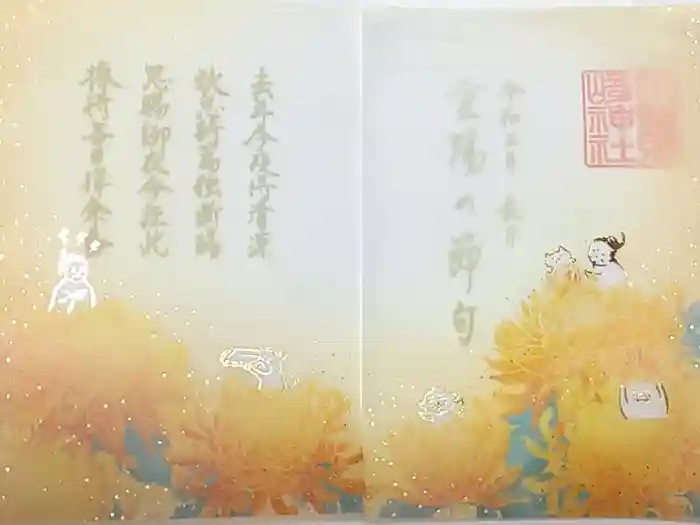 崎神社
令和 年 長月
重陽の節句
去年今夜侍清涼
秋思詩篇独断腸
恩賜御衣今在此
捧持毎日拝余香